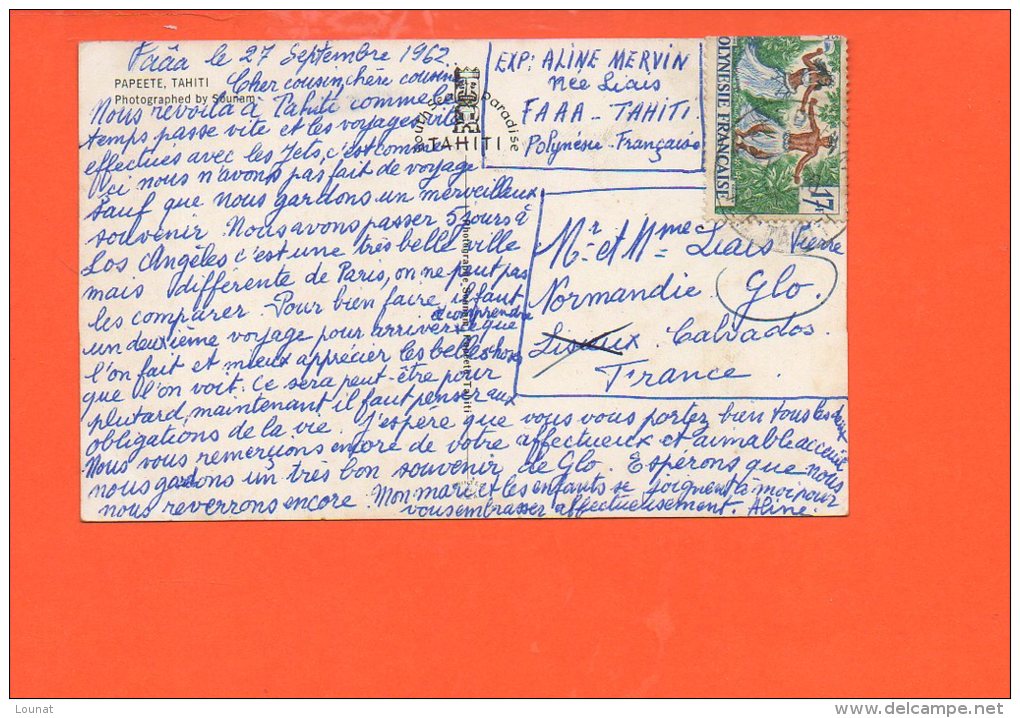 Fáâa le 27 Septembre 1962.
PAPEETE, TAHITI
Photographed by Sounam
Cher cousin, chère cousine
Nous revoilà à Tahiti comme le
temps passe vite et les voyages vite
effectués avec les Jets, c'est comme
si nous n'avons pas fait de voyage
sauf que nous gardons un merveilleux
souvenir. Nous avons passer 5 jours à
Los Angèles c'est une très belle ville
mais différente de Paris, on ne peut pas
les comparer. Pour bien faire, il faut
un deuxième voyage pour arriver à comprendre ce que
l'on fait et mieux apprécier les belles choses
que l'on voit. Ce sera peut-être pour
plutard, maintenant il faut penser aux
obligations de la vie. J'espère que vous vous portez bien tous les deux
Nous vous remerçions encore de votre affectueux et aimable acceuil
nous gardons un très bon souvenir de Glo. Espérons que nous
nous reverrons encore. Mon mari et les enfants se joignent à moi pour
vous embrasser affectueusement. Aline.
South Sea paradise
TAHITI
Photographe Sounam, Papeete Tahiti
EXP: ALINE MERVIN
née Liais
FAAA - TAHITI
Polynésie-Française
POLYNESIE FRANÇAISE
17F
Mr et Mme Liais Pierre
Glo.
Normandie
Lisieux Calvados.
France.
Lounat
delcampe.net